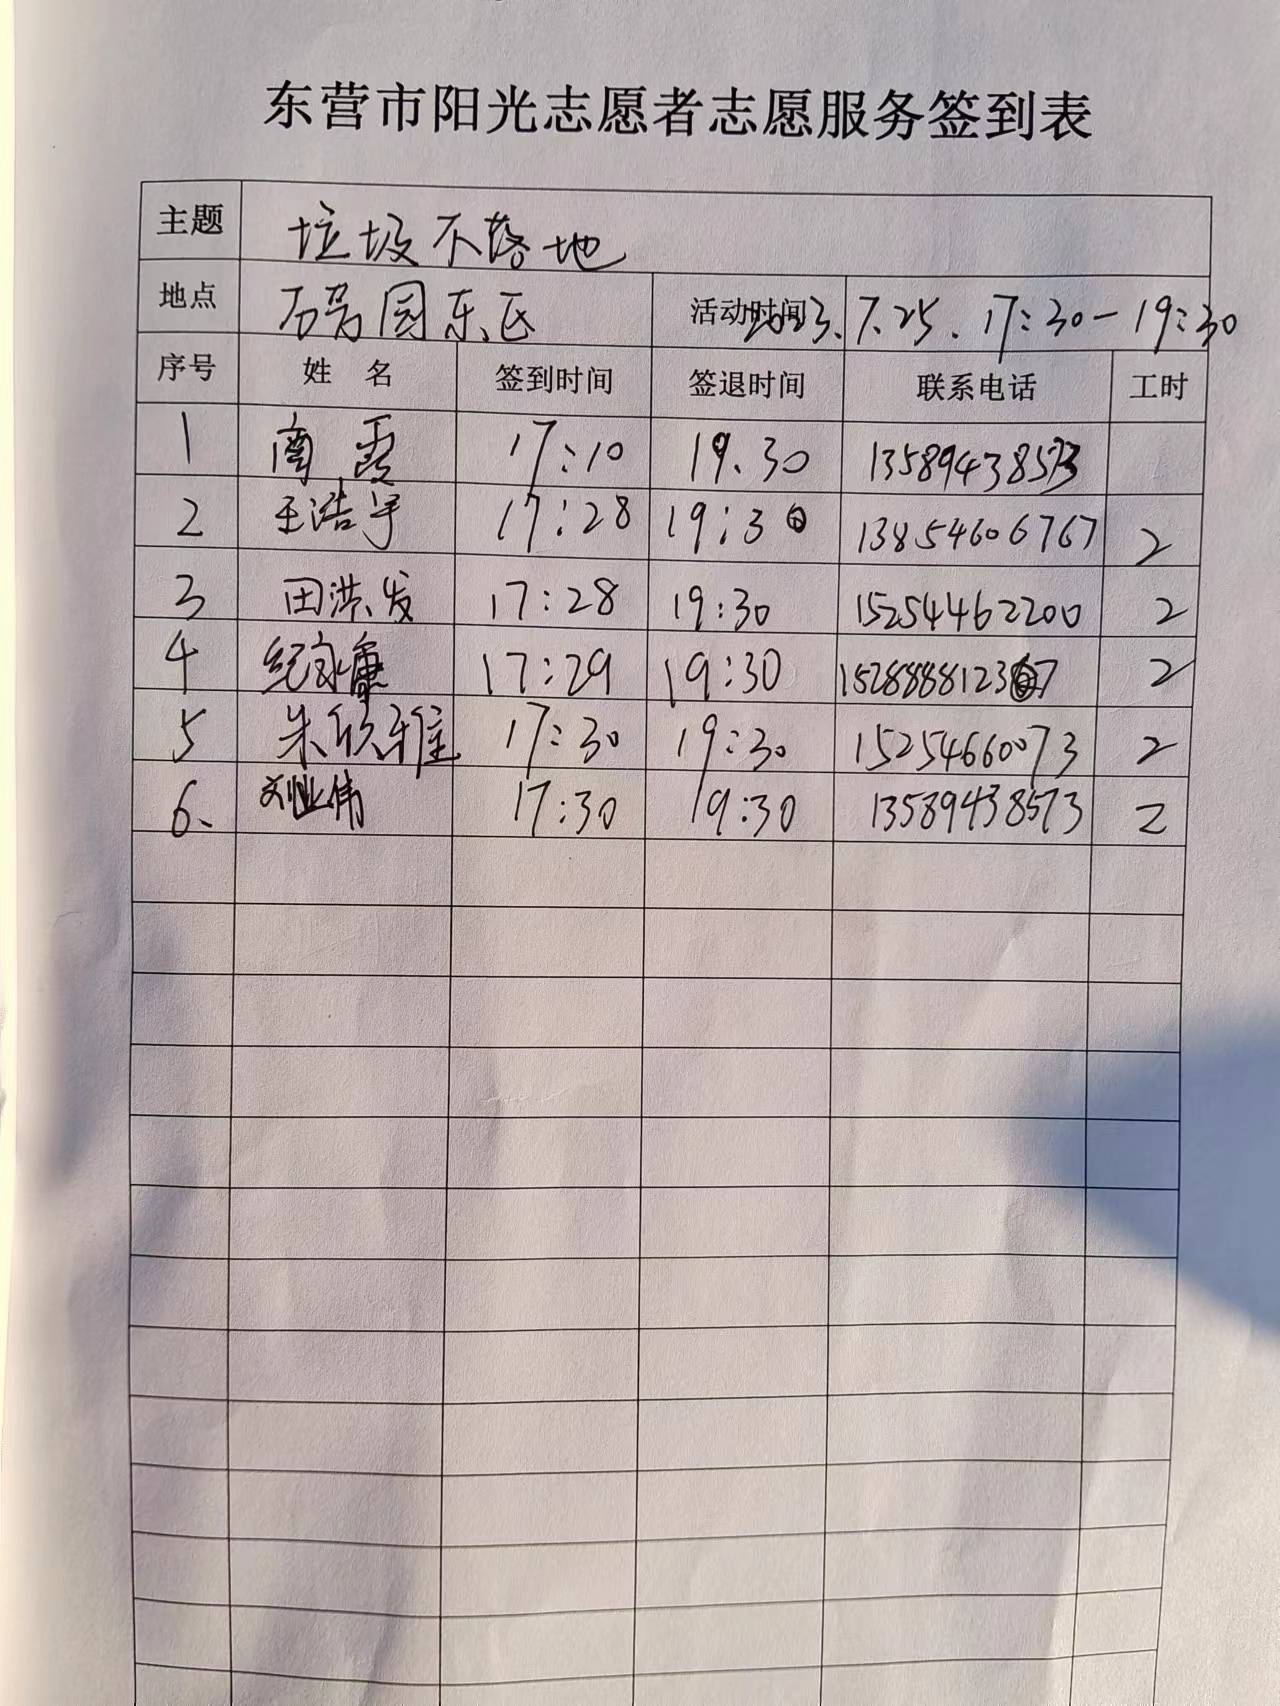 东营市阳光志愿者志愿服务签到表
主题 垃圾不落地
地点 万芳园东区 活动时间 2023.7.25.17:30-19:30
序号 姓 名 签到时间 签退时间 联系电话 工时
1 商霞 17:10 19.30 13589438573
2 王浩宇 17:28 19:30 13854606767 2
3 田洪发 17:28 19:30 15254462200 2
4 17:29 19:30 2
5 朱欣雅 17:30 19:30 15254660073 2
6、 刘业伟 17:30 19:30 13589438573 2